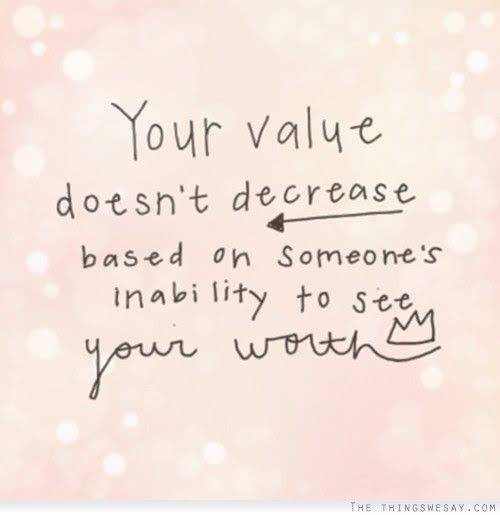 Your value
doesn't decrease
based on someone's
inability to see
your worth
THE THINGSWESAY.COM